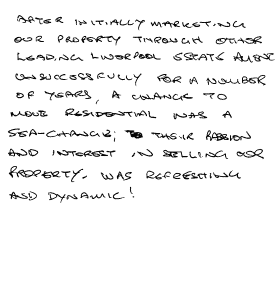 AFTER INITIALLY MARKETING
OUR PROPERTY THROUGH OTHER
LEADING LIVERPOOL ESTATE AGENT
UNSUCCESSFULLY FOR A NUMBER
OF YEARS, A CHANGE TO
MOVE RESIDENTIAL WAS A
SEA-CHANGE; THEIR PASSION
AND INTEREST IN SELLING OUR
PROPERTY, WAS REFRESHING
AND DYNAMIC!